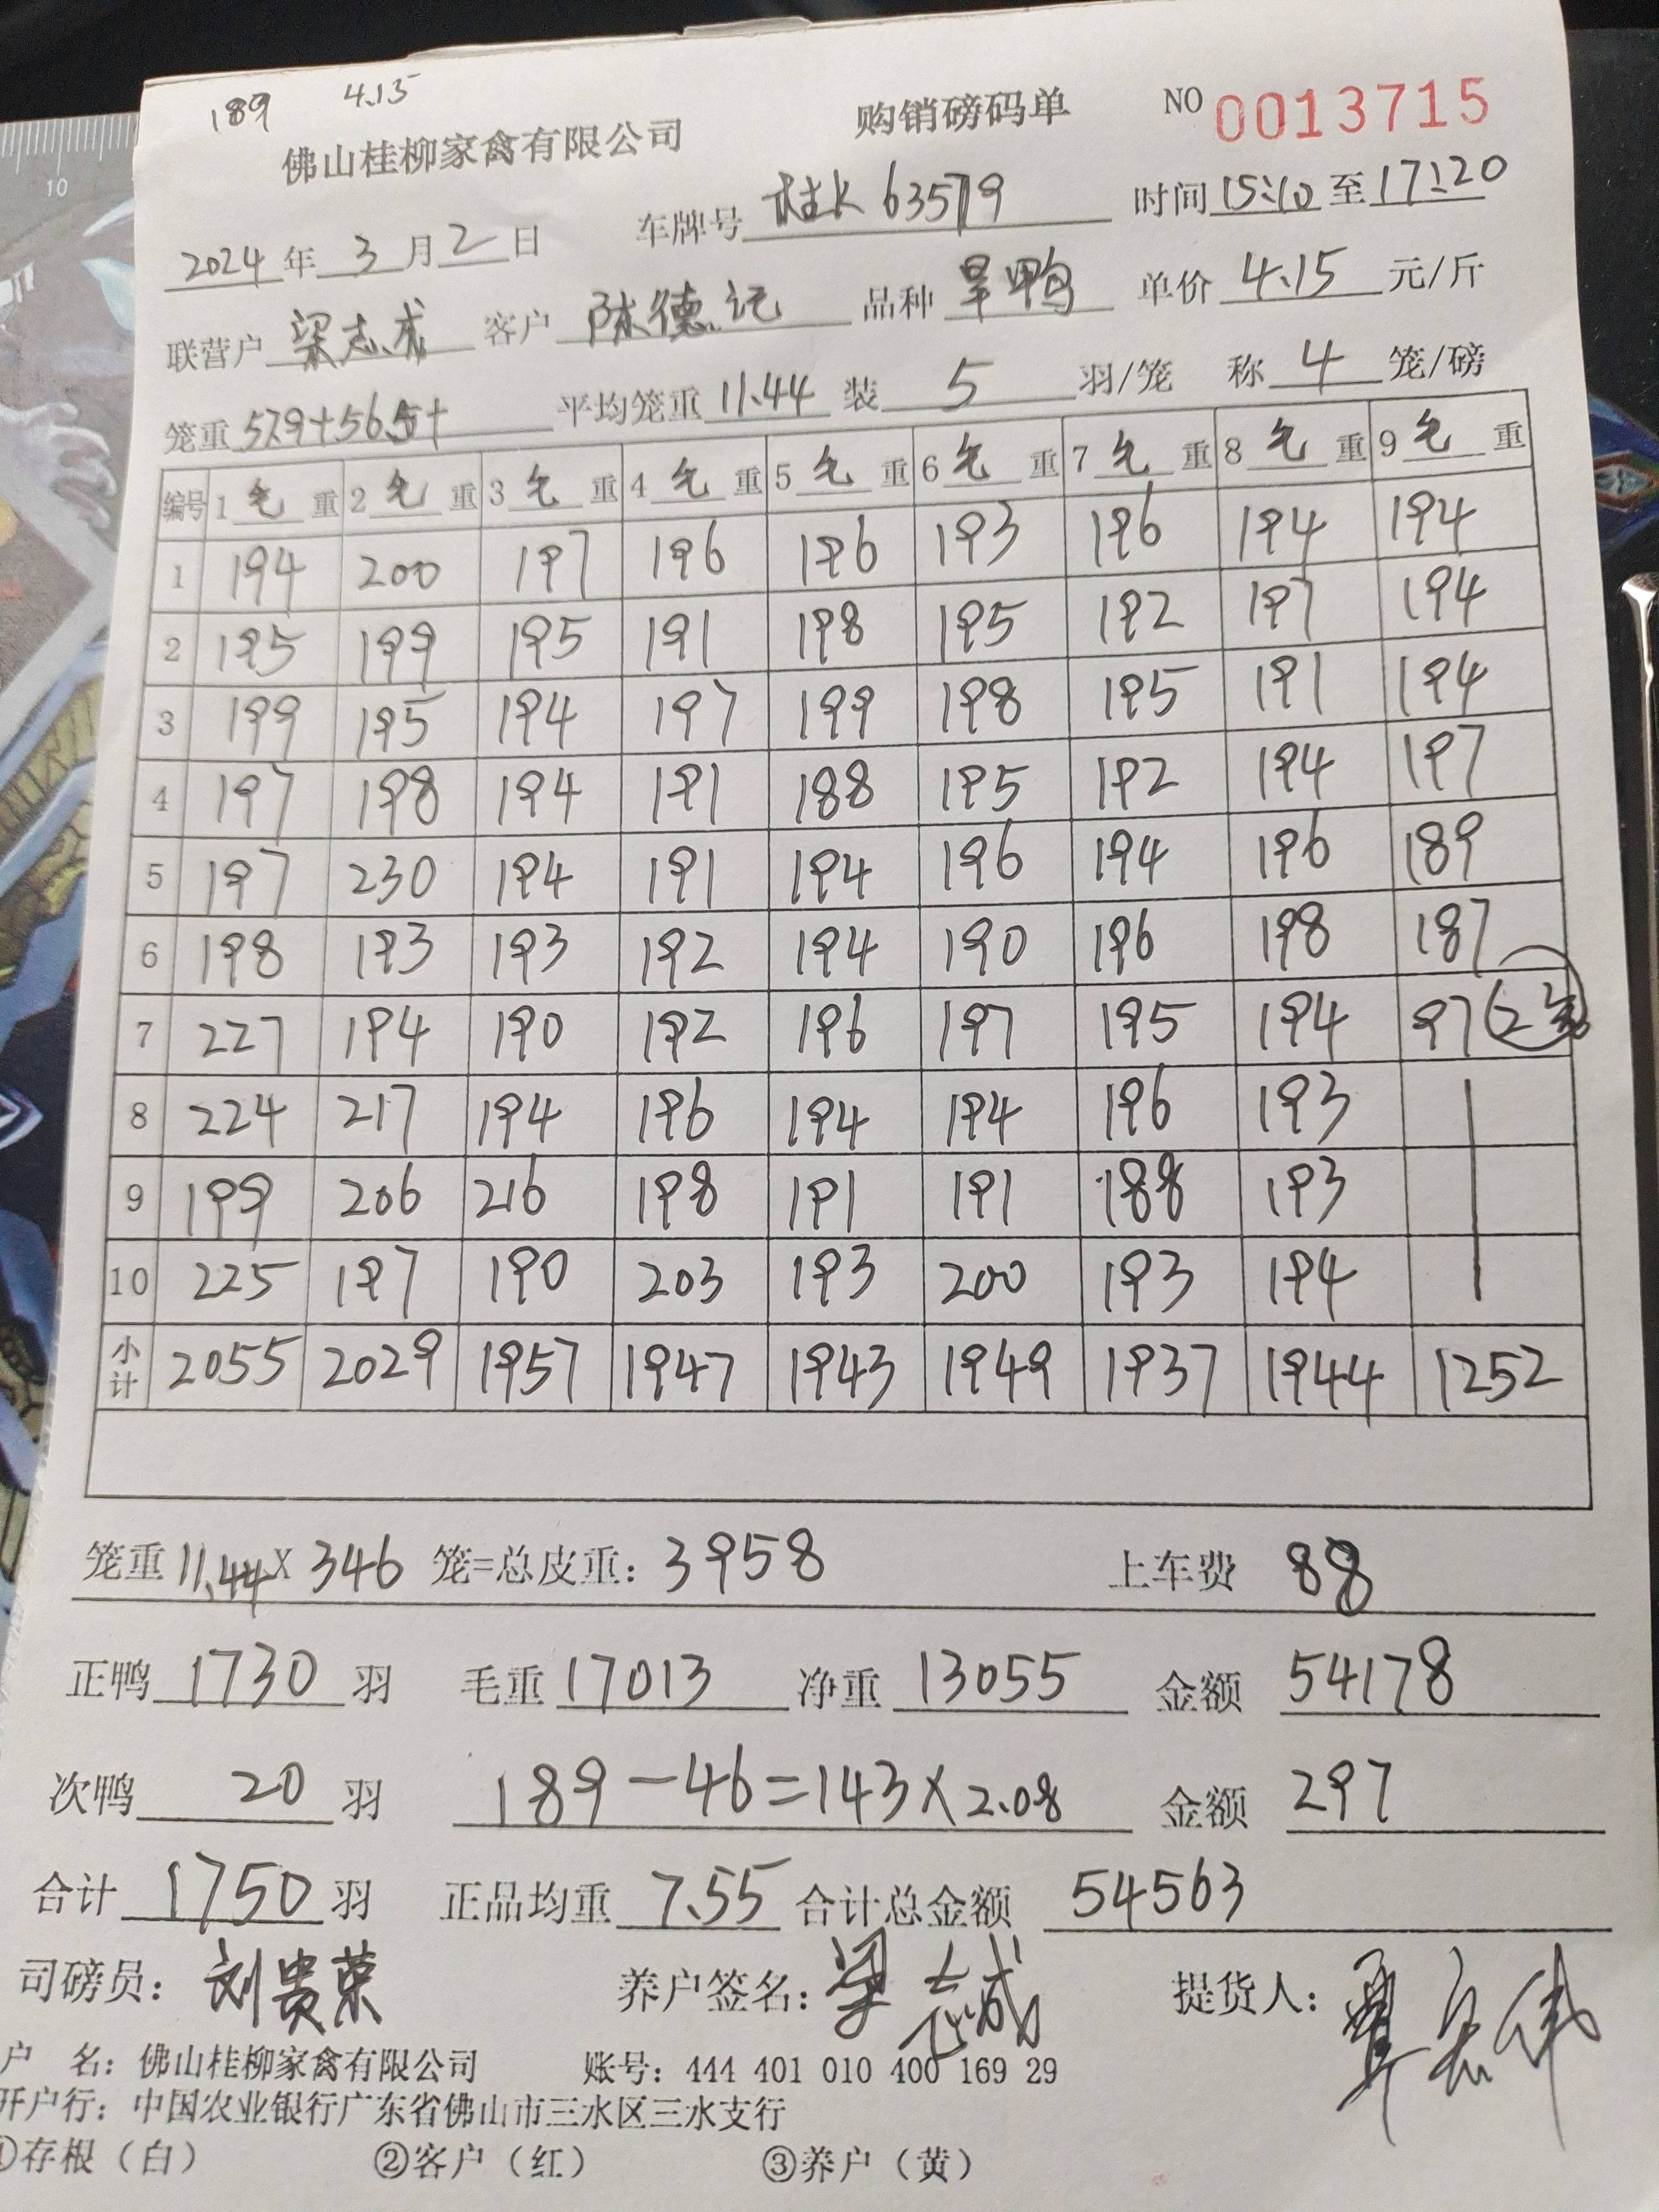 189 4.15
佛山桂柳家禽有限公司 购销磅码单 NO 0013715
2024年3月2日 车牌号 桂K 63579 时间 15:10 至 17:20
联营户 梁志成 客户 陈德记 品种 旱鸭 单价 4.15 元/斤
笼重 57.9+56.5+ 平均笼重 11.44 装 5 羽/笼 称 4 笼/磅
编号 1 毛 重 2 毛 重 3 毛 重 4 毛 重 5 毛 重 6 毛 重 7 毛 重 8 毛 重 9 毛 重
1 194 200 197 196 196 193 196 194 194
2 195 199 195 191 198 195 192 197 194
3 199 195 194 197 199 198 195 191 194
4 197 198 194 191 188 195 192 194 197
5 197 230 194 191 194 196 194 196 189
6 198 193 193 192 194 190 196 198 187
7 227 194 190 192 196 197 195 194 97 (2笼)
8 224 217 194 196 194 194 196 193
9 199 206 216 198 191 191 188 193
10 225 197 190 203 193 200 193 194
小计 2055 2029 1957 1947 1943 1949 1937 1944 1252
笼重 11.44 X 346 笼=总皮重: 3958 上车费 88
正鸭 1730 羽 毛重 17013 净重 13055 金额 54178
次鸭 20 羽 189-46=143×2.08 金额 297
合计 1750 羽 正品均重 7.55 合计总金额 54563
司磅员: 刘贵荣 养户签名: 梁志成 提货人:
户 名: 佛山桂柳家禽有限公司 账号: 444 401 010 400 169 29
开户行: 中国农业银行广东省佛山市三水区三水支行
①存根（白） ②客户（红） ③养户（黄）